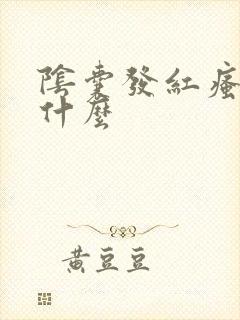 陰囊發紅瘙
什麼
黃豆豆